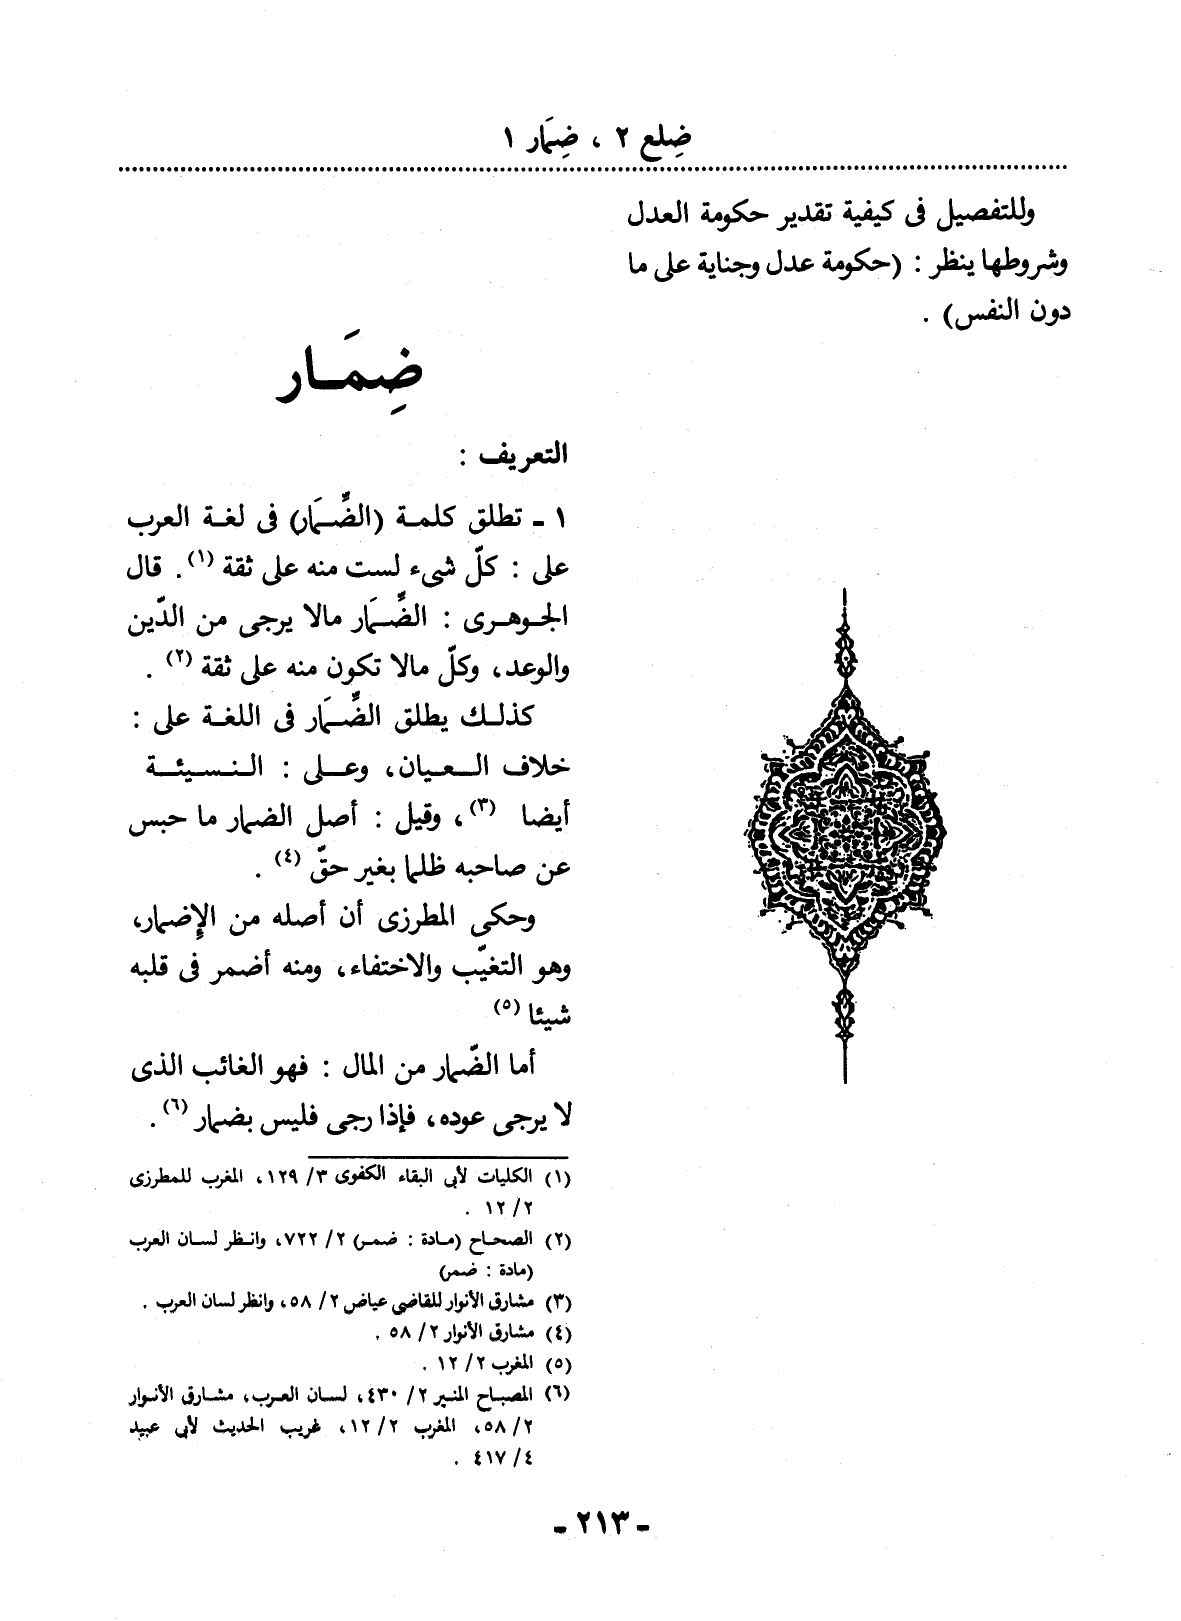 ضِلع ٢ ، ضِمَار ١
وللتفصيل فى كيفية تقدير حكومة العدل
وشروطها ينظر : (حكومة عدل وجناية على ما
دون النفس) .
ضِمَـار
التعريف :
١ ـ تطلق كلمـة (الضِّـمَار) فى لغـة العرب
على : كلّ شىء لست منه على ثقة (١) . قال
الجـوهـرى : الضِّـمَار مالا يرجى من الدّين
والوعد، وكلّ مالا تكون منه على ثقة (٢) .
كذلـك يطلق الضِّـمَار فى اللغـة على :
خلاف الـعـيان، وعـلى : الـنـسـيئـة
أيضا (٣) ، وقيل : أصل الضمار ما حبس
عن صاحبه ظلما بغير حقّ (٤) .
وحكى المطرزى أن أصله من الإِضمار،
وهو التغيّب والاختفاء، ومنه أضمر فى قلبه
شيئا (٥)
أما الضّمار من المال : فهو الغائب الذى
لا يرجى عوده، فإذا رجى فليس بضمار (٦) .
(١) الكليات لأبى البقاء الكفوى ٣/ ١٢٩، المغرب للمطرزى
٢/ ١٢ .
(٢) الصحـاح (مـادة : ضمـر) ٢/ ٧٢٢، وانـظر لسـان العرب
(مادة : ضمر)
(٣) مشارق الأنوار للقاضى عياض ٢/ ٥٨، وانظر لسان العرب .
(٤) مشارق الأنوار ٢/ ٥٨ .
(٥) المغرب ٢/ ١٢ .
(٦) المصبـاح المنـير ٢/ ٤٣٠، لسـان العـرب، مشـارق الأنـوار
٢/ ٥٨، المغرب ٢/ ١٢، غريب الحديث لأبى عبيد
٤/ ٤١٧ .
ـ ٢١٣ ـ